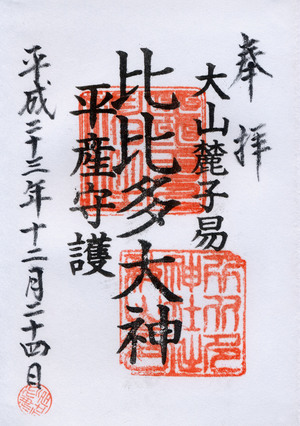 奉拝
大山麓子易
比比多大神
平産守護
平成二十三年十二月二十四日